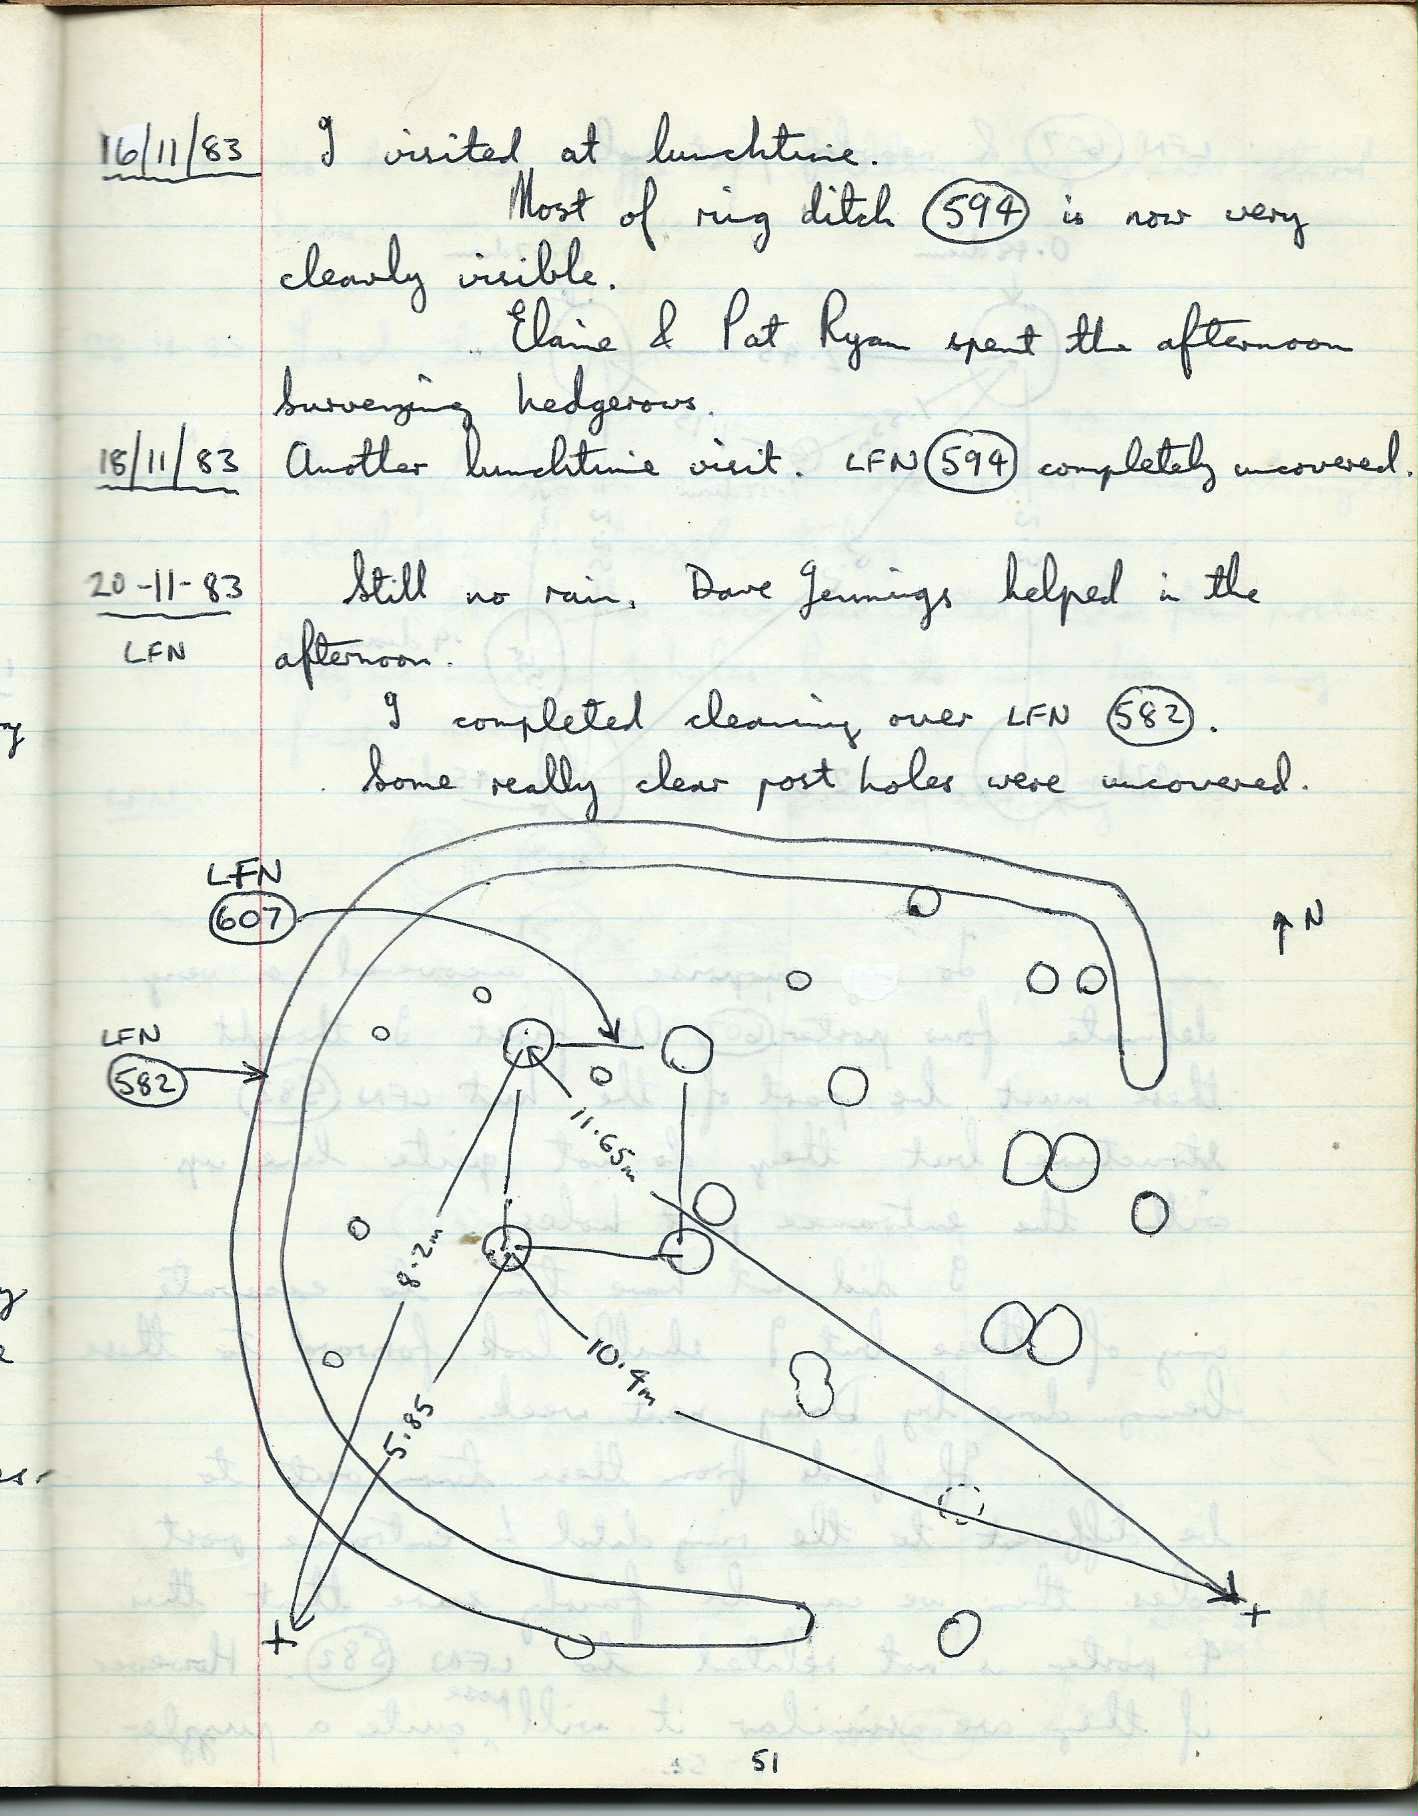 16/11/83 I visited at lunchtime.
Most of ring ditch 594 is now very
clearly visible.
Elaine & Pat Ryan spent the afternoon
surveying hedgerows.
18/11/83 Another lunchtime visit. LFN 594 completely uncovered.
20-11-83 Still no rain. Dave Jennings helped in the
LFN afternoon.
I completed cleaning over LFN 582.
Some really clear post holes were uncovered.
LFN
607
N
LFN
582
11.65m
8.2m
10.4m
5.85
51